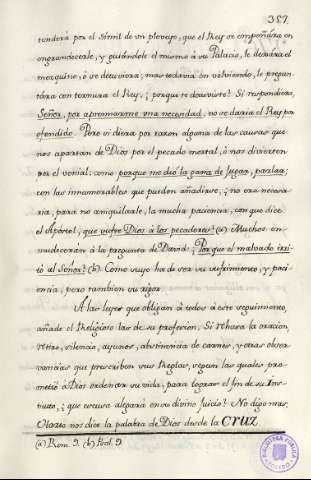 357.
tenderá por el Símil de un plebeyo, que el Rey se empeñára en
engrandecerle, y guiándole el mismo à su Palacio, le dexára el
mezquino, ò se detuviera; mas todavia èn volviendo, le pregun-
tára con ternura el Rey, ¿porque te detuviste? Si respondiera,
Señor, por apromiarme una necesidad, no se daria el Rey por
ofendido. Pero si diera por razon alguna de las causas que
nos apartan de Dios por el pecado mortal, ò nos divierten
por el venial: como porque me dió la gana de jugar, parlar;
con las innumerables que pueden añadirse, ¿no era necesa-
ria, para no aniquilarle, la mucha paciencia, con que dice
el Apóstol, que sufre Dios à los pecadores? (a) Muchos en-
mudecerán à la pregunta de David: ¿Porque el malvado irri-
tó al Señor? (b) Como suyo ha de ser su sufrimiento, y paci-
encia, pero tambien su rigor.
A las leyes que obligan à todos à este seguimiento,
añade el Religioso las de su profesion. Si rehusa la oracion,
retiro, silencio, ayunos, abstinencia de carnes, y otras obser-
vancias que prescriben sus Reglas, segun las quales pro-
metió à Dios ordenar su vida, para lograr el fin de su Ins-
tituto, ¿que escusa alegará en su divino Juicio? No digo mas.
nos dice la palabra de Dios desde la Cruz
(a) Rom. 9. (b) Psal. 9.
BIBLIOTECA PUBLICA
TOLEDO